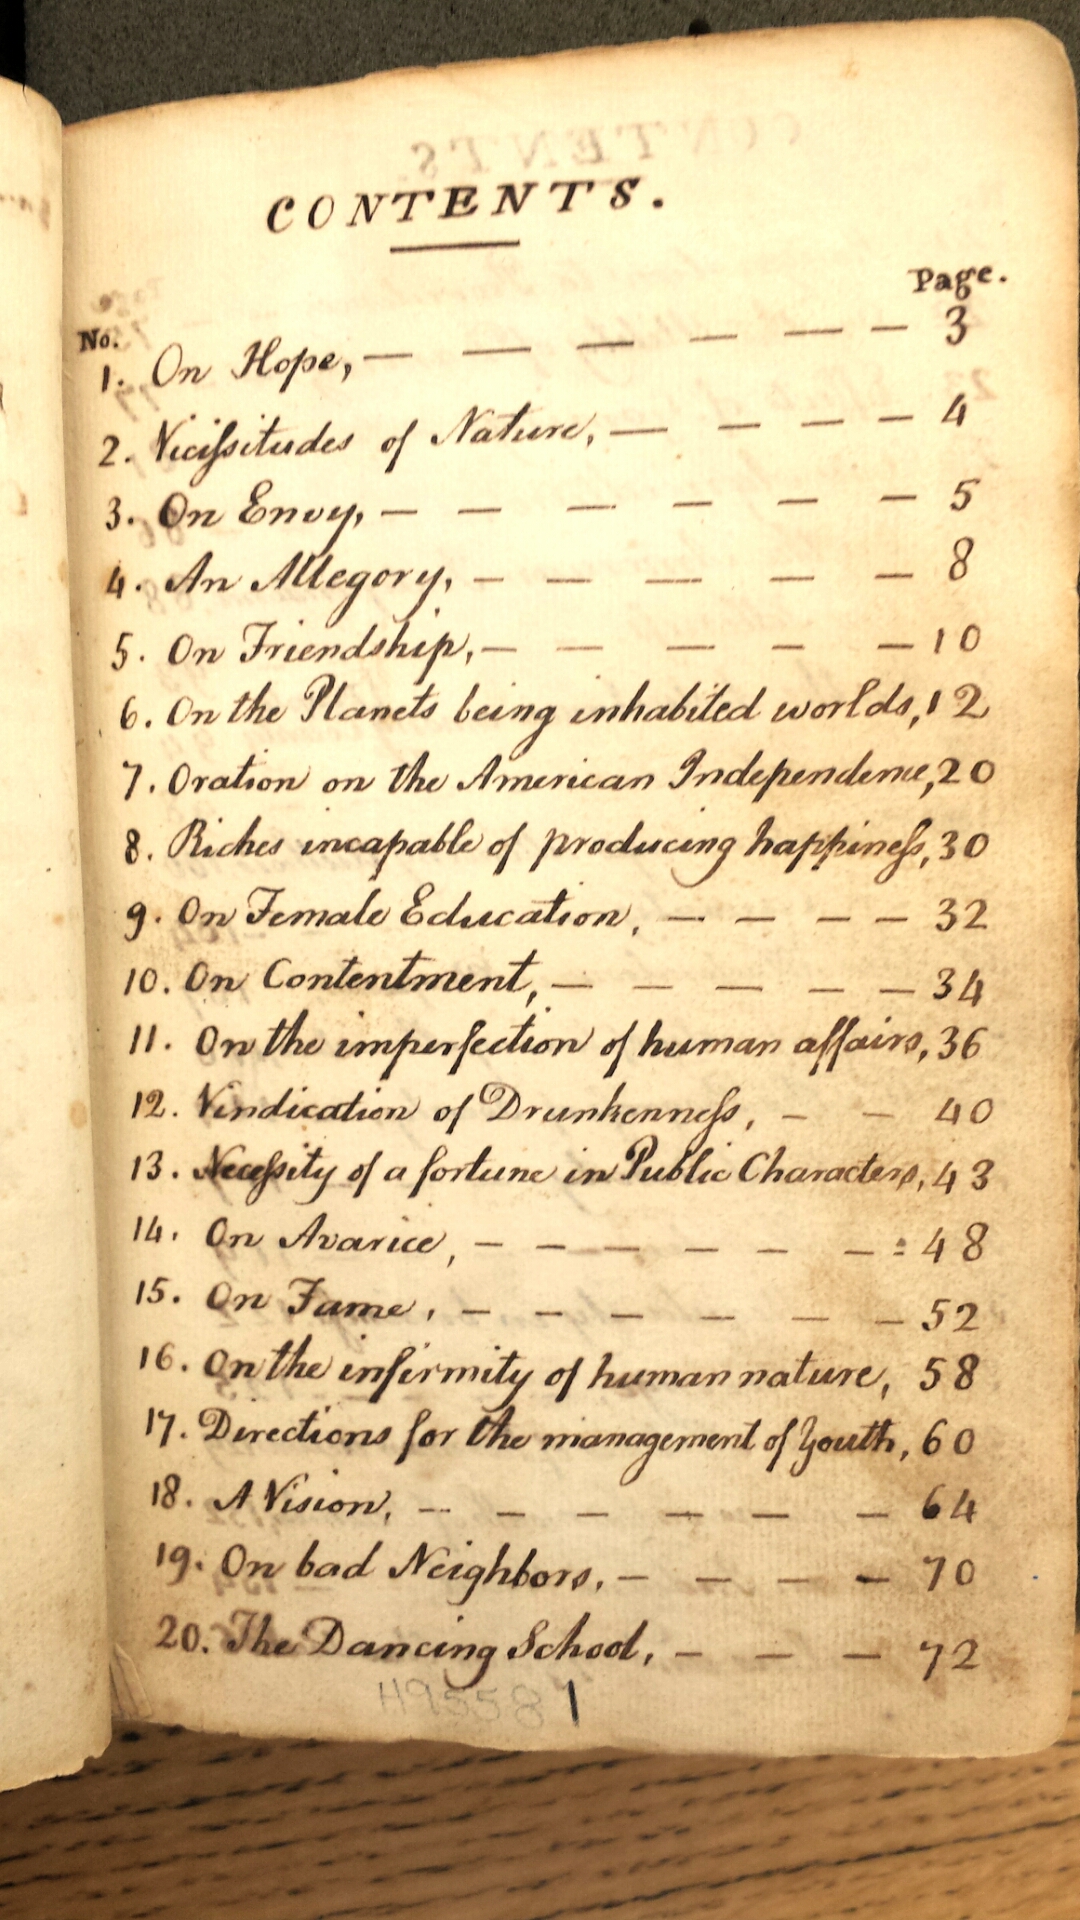 CONTENTS.
Page.
No.
1. On Hope, — — — — — — 3
2. Viciſsitudes of Nature, — — — — 4
3. On Envy, — — — — — — 5
4. An Allegory, — — — — — 8
5. On Friendship, — — — — — 10
6. On the Planets being inhabited worlds, 12
7. Oration on the American Independence, 20
8. Riches incapable of producing happineſs, 30
9. On Female Education, — — — — 32
10. On Contentment, — — — — — 34
11. On the imperfection of human affairs, 36
12. Vindication of Drunkenneſs, — — 40
13. Neceſsity of a fortune in Public Characters, 43
14. On Avarice, — — — — — — 48
15. On Fame, — — — — — — 52
16. On the infirmity of human nature, 58
17. Directions for the management of Youth, 60
18. A Vision, — — — — — — 64
19. On bad Neighbors, — — — — 70
20. The Dancing School, — — — 72
H95581